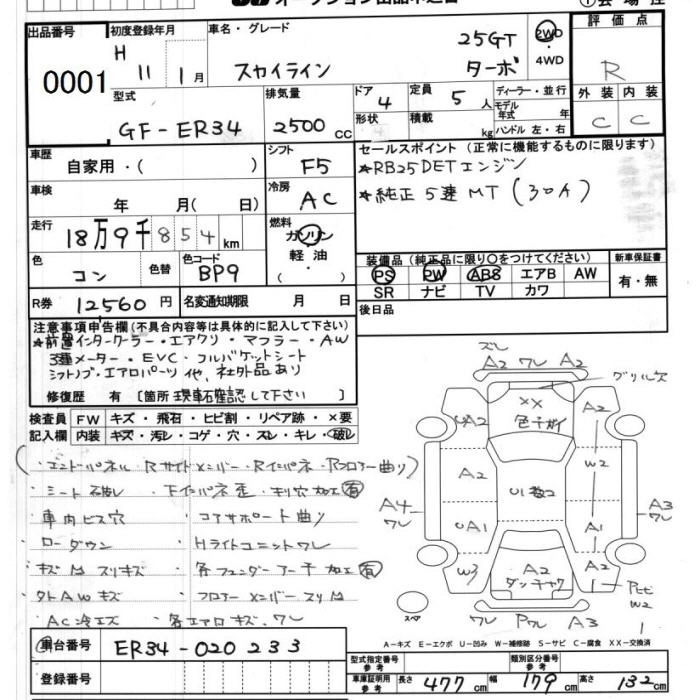 出品番号
0001
初度登録年月
H 11年 1月
車名・グレード
スカイライン
25GT
ターボ
2WD
・4WD
評価点
R
外装 内装
C C
型式
GF-ER34
排気量
2500 cc
ドア 4
形状
定員 5 人
積載 kg
ディーラー・並行
モデル
年式 年
ハンドル 左・右
車歴
自家用・( )
シフト F5
車検
年 月( 日)
冷房 AC
走行
18万9千854 km
燃料
ガソリン
軽油
・( )
色 コン
色替
色コード BP9
R券 12560 円
名変通知期限 月 日
セールスポイント (正常に機能するものに限ります)
★RB25DETエンジン
★純正5速MT (30万)
装備品 (純正品に限り〇をつけてください)
PS PW ABS エアB AW
SR ナビ TV カワ
新車保証書
有・無
後日品
注意事項申告欄 (不具合内容等は具体的に記入して下さい)
★前置インタークーラー・エアクリ・マフラー・AW
3連メーター・EVC・フルバケットシート
シフトノブ・エアロパーツ 他、社外品あり
修復歴 有 [箇所 現車確認して下さい]
検査員 FW キズ・飛石・ヒビ割・リペア跡・×要
記入欄 内装 キズ・汚レ・コゲ・穴・スレ・キレ・破レ
・エンドパネル・Rサイドメンバー・Rインパネ・Rフロアー曲り)
・シート破レ ・下インパネ歪・キリ穴加工有
・車内ビス穴 ・コアサポート曲り
・ローダウン ・Hライトユニットワレ
・キズM スリキズ ・各フェンダーアーチ加工有
・外AWキズ ・フロアーメンバースリM
・AC冷エズ ・各エアロキズ、ワレ
車台番号 ER34-020233
登録番号
ズレ
A2 ワレ A2
グリル欠
XX
色チガイ
UA2
A2
A2
W2
U1数2
A4
ワレ
UA1
A1
A3
ワレ
W3
A2
ダッチャク
A2
W2
1
スペア
ワレ Pワレ A3
A-キズ E-エクボ U-凹み W-補修跡 S-サビ C-腐食 XX-交換済
型式指定番号
参考
類別区分番号
参考
車庫証明用
参考
長さ 477 cm 幅 179 cm 高さ 132 cm